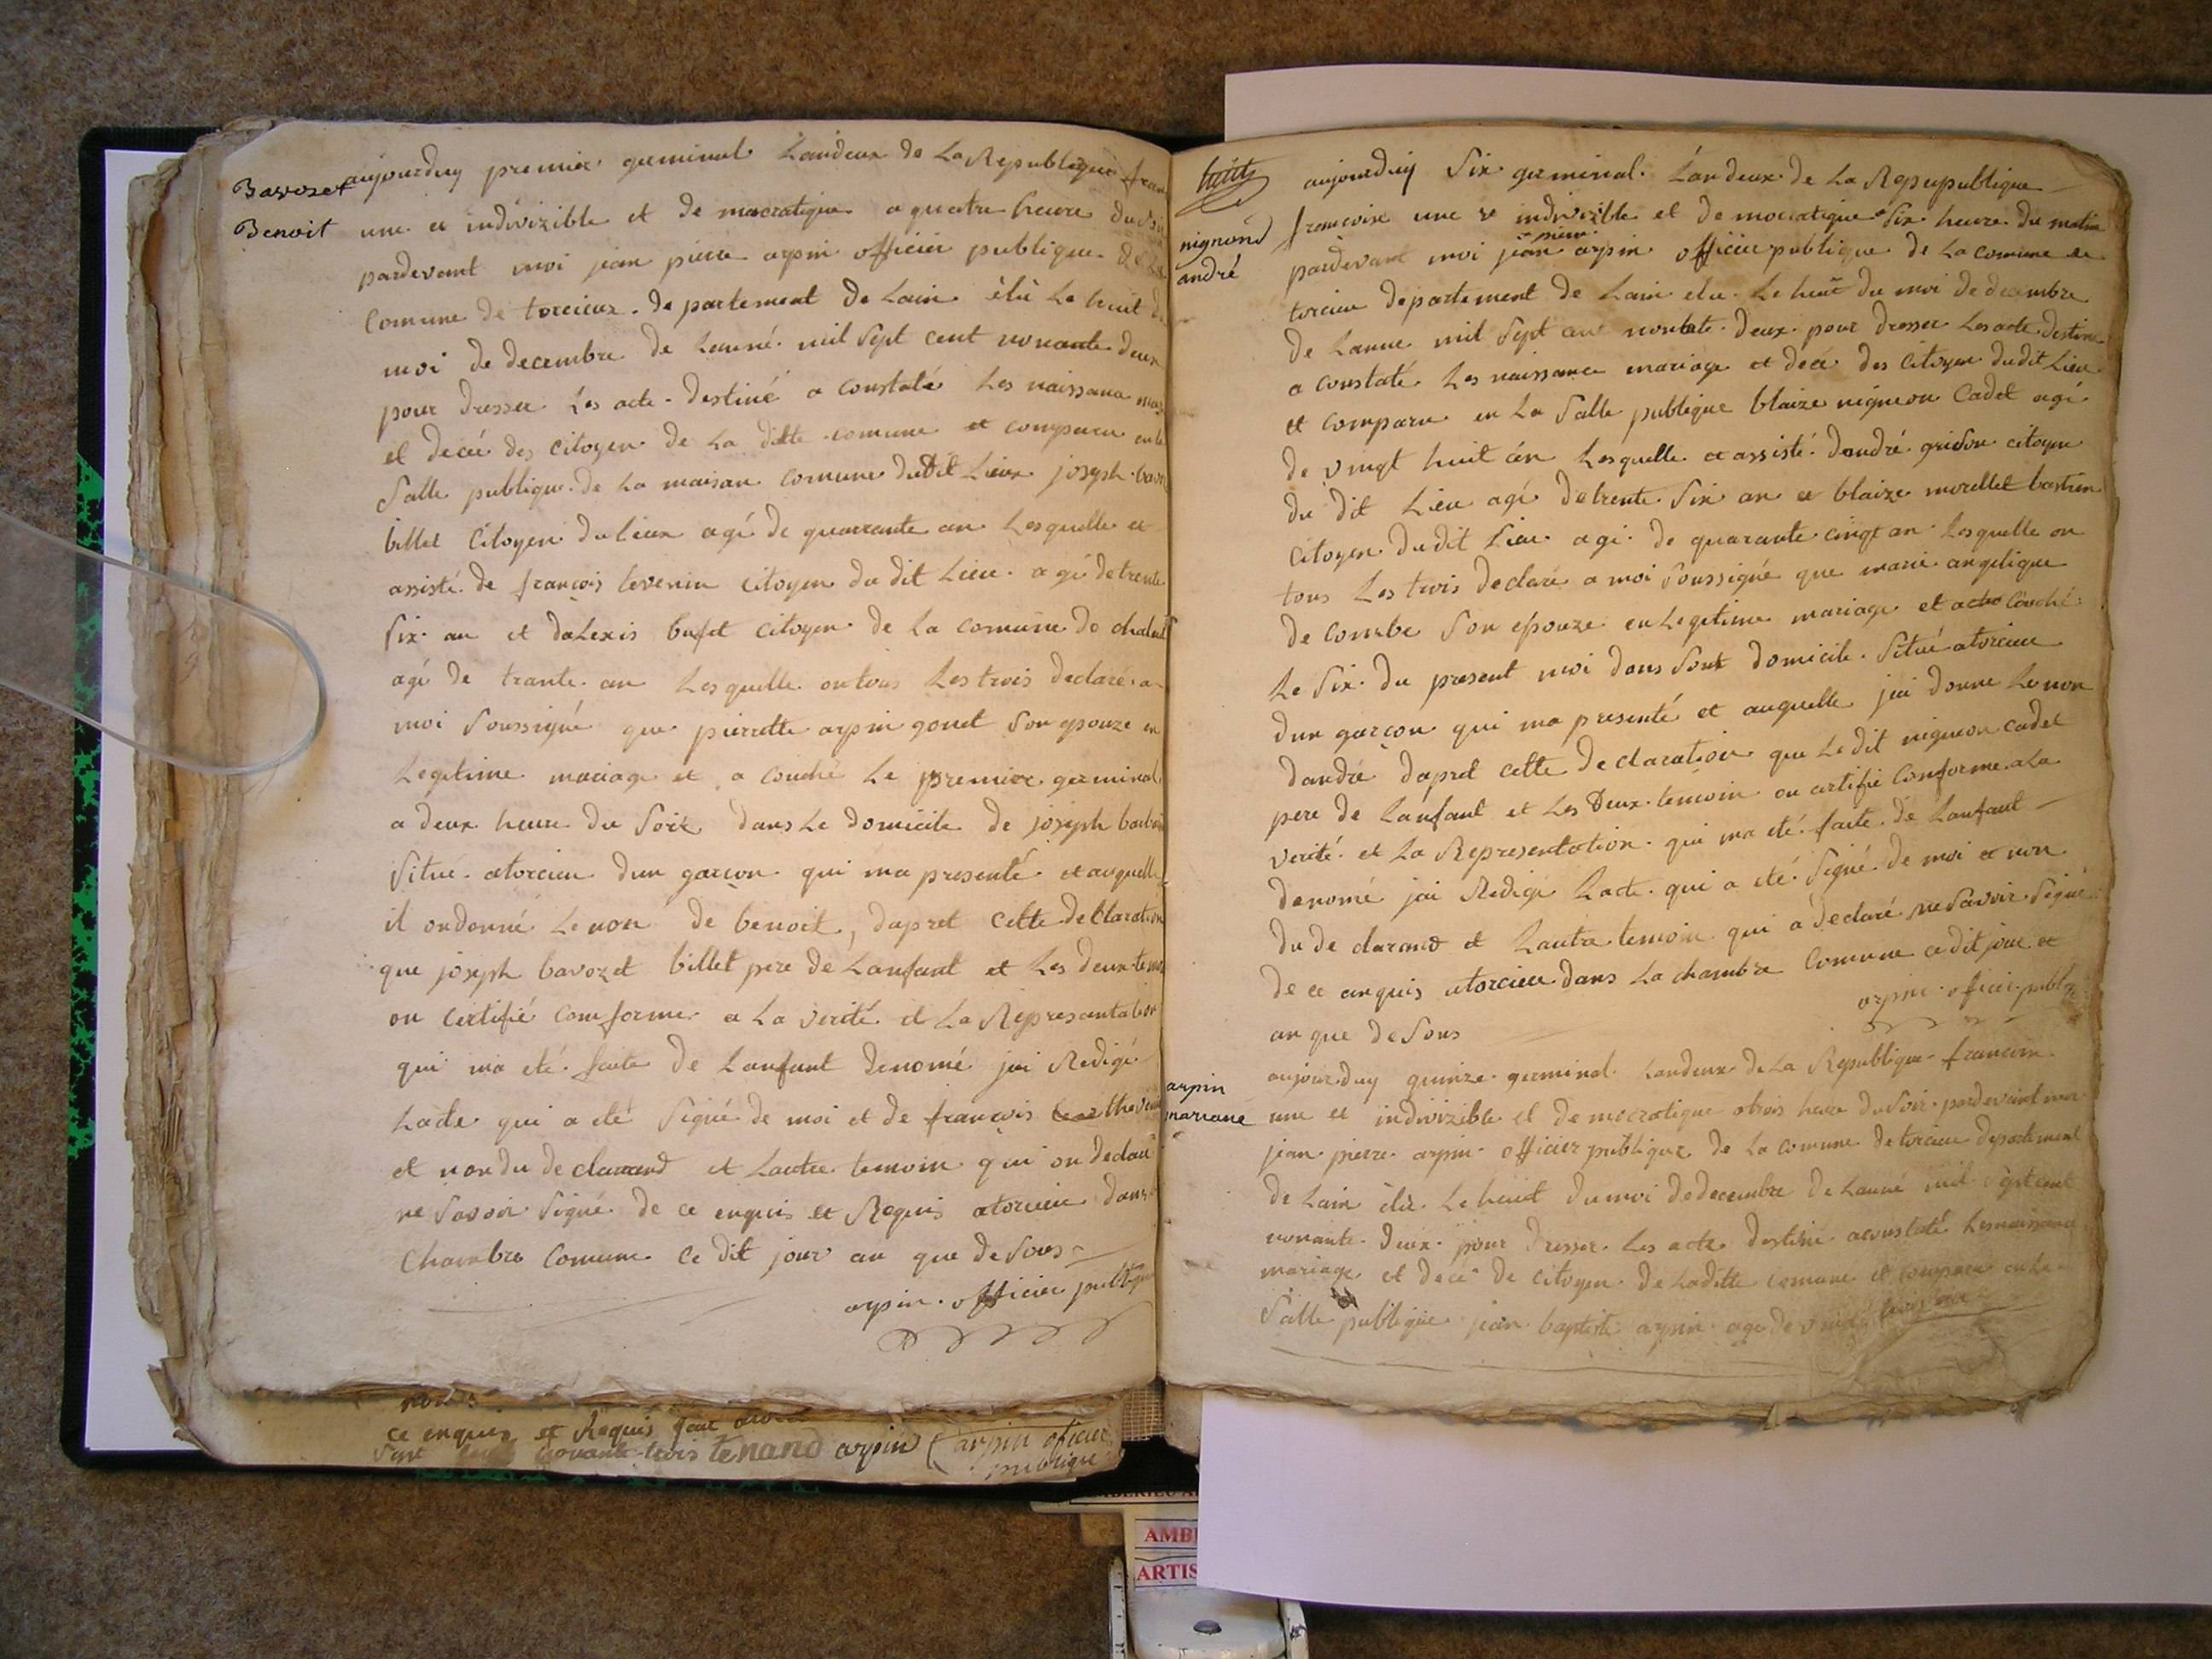 Bavozet
Benoit
aujourduy premier germinal Landeux de La Republique fran
une et indivizible et de mocratique a quatre heure du soi
pardevant moi jean pierre arpin officier publique de la
Comune de torcieux departement de Lain élu Le huit d
moi de decembre de Lanné mil sept cent nonante deux
pour dresser Les acte destiné a constaté Les naissance mar
et decée des citoyen de La ditte comune et comparu en la
Salle publique de La maison comune dudit Lieux joseph bavo
billet Citoyen du lieux agé de quarrante an Lesquelle et
assisté de françois tevenin citoyen du dit Lieu agé de trente
six an et daLexis bufet citoyen de La comune de
agé de trante an Lesquelle on tous Les trois declaré a
moi soussigné que pierrette arpin gonet son epouze en
Legitime mariage et a couché Le premier germinal
a deux heure du soir dans Le domicile de joseph
situé atorcieu dun garçon qui ma presenté et auquelle
il on donné Le non de benoit, dapret cette declaration
que joseph bavozet billet pere de Lanfant et Les deux temo
on certifié comforme a La verité et La Representation
qui ma eté faite de Lanfant denomé jai Redigé
Lacte qui a eté signé de moi et de françois thevenin
et non du declarand et Lautre temoin qui on declaré
ne savoir signé de ce enquis et Requis atorcieu dans
Chambre Comune ce dit jour an que desous
arpin officier publique
ce enquis et Requis
nonante trois tenand arpin arpin oficier
publique
huit
nignond
andré
aujourduij Six germinal Landeux de La Repupublique
francoise une et indivizible et democratique a six heure du matin
pierre
pardevant moi jean arpin officier publique de La comune de
torcieu departement de Lain elu Le huit du moi de decembre
de Lanne mil sept cent nontate deux pour dresser Les acte destine
a constaté Les naissance mariage et decé des citoyen dudit Lieu
et comparu en La salle publique blaize nigneon Cadet agé
de vingt huit an Lesquelle et assisté dandré grison citoyen
du dit Lieu agé de trente six an et blaize morellet bastien
citoyen dudit Lieu agé de quarante cinqt an Lesquelle on
tous Les trois declaré a moi soussigné que marie angelique
de combe son epouze en Legitime mariage et acouché
Le six du present moi dans sont domicile situé atorcieu
dun garçon qui ma presenté et auquelle jai donne Le non
dandré dapret cette declaration que Le dit nigneon cadet
pere de Lanfant et Les deux temoin on certifié conforme a La
verité et La Representation qui ma eté faite de Lanfant
denomé jai Redigé Lacte qui a eté signé de moi et non
du declarand et Lautre temoin qui a declaré ne savoir signé
de ce anquis atorcieu dans La chambre Comune ce dit jour et
an que desous
arpin oficier publiq
arpin
mariane
aujourduy quinze germinal Landeux de La Republique francoise
une et indivizible et democratique atrois heure du soir pardevant moi
jean pierre arpin officier publique de La comune de torcieu departement
de Lain élu Le huit du moi de decembre de Lanné mil septcent
nonante deux pour dresser Les acte destiné aconstaté Les naissance
mariage et decé de citoyen de Laditte comune et comparu en La
salle publique jean baptiste arpin agé de vingt trois an
AMBERIEU
AMB
ARTIS